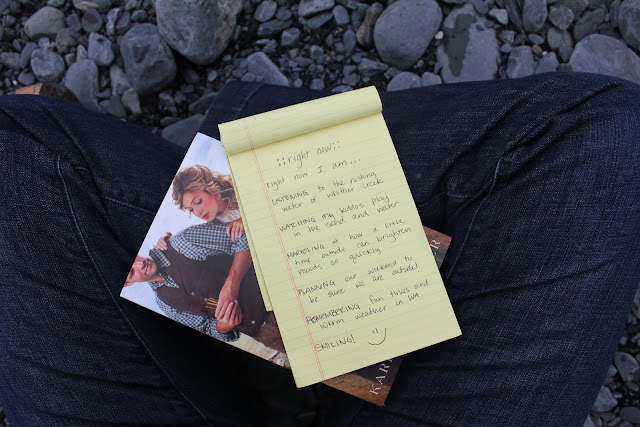 ::right now::
right now I am...
LISTENING to the rushing
water of whittier creek
WATCHING my kiddos play
in the sand and water
MARVELING at how a little
time outside can brighten
moods so quickly
PLANNING our weekend to
be sure we are outside!
REMEMBERING fun times and
warm weather in WA
SMILING! :)
KAR
R